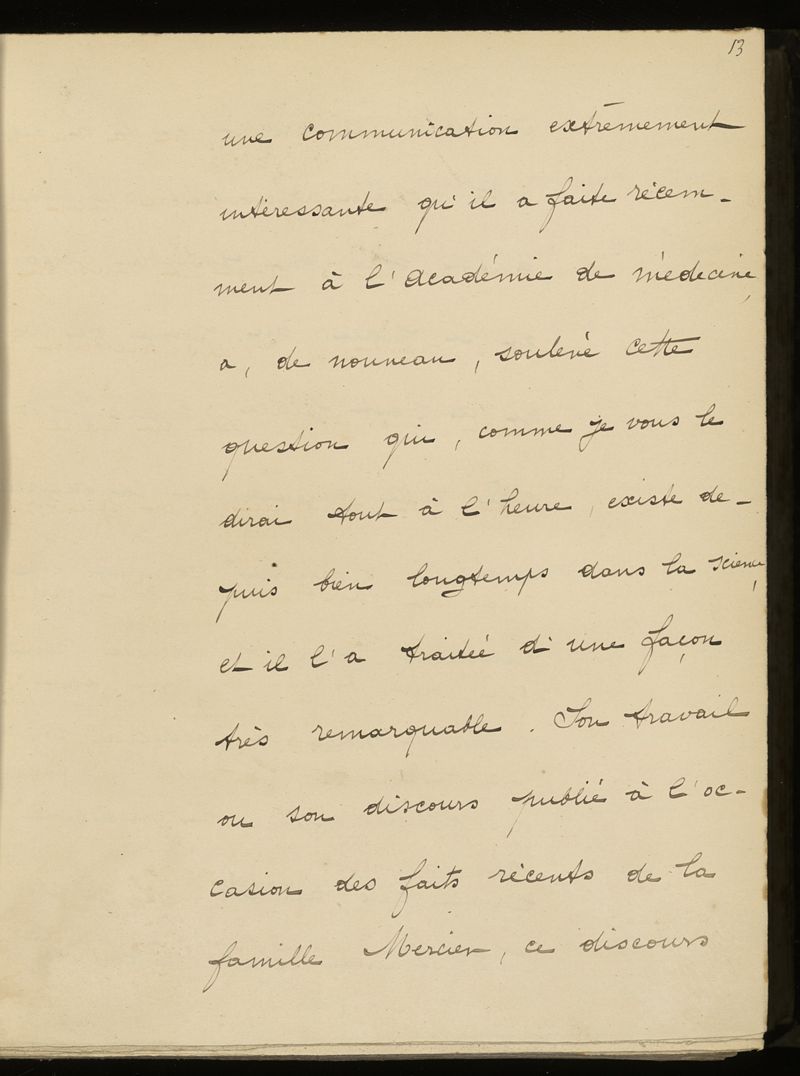 13
une communication extrêmement
intéressante qu'il a faite récem-
ment à l'Académie de médecine,
a, de nouveau, soulevé cette
question qui, comme je vous le
dirai tout à l'heure, existe de-
puis bien longtemps dans la science,
et il l'a traitée d'une façon
très remarquable. Son travail
ou son discours publié à l'oc-
casion des faits récents de la
famille Mercier, ce discours